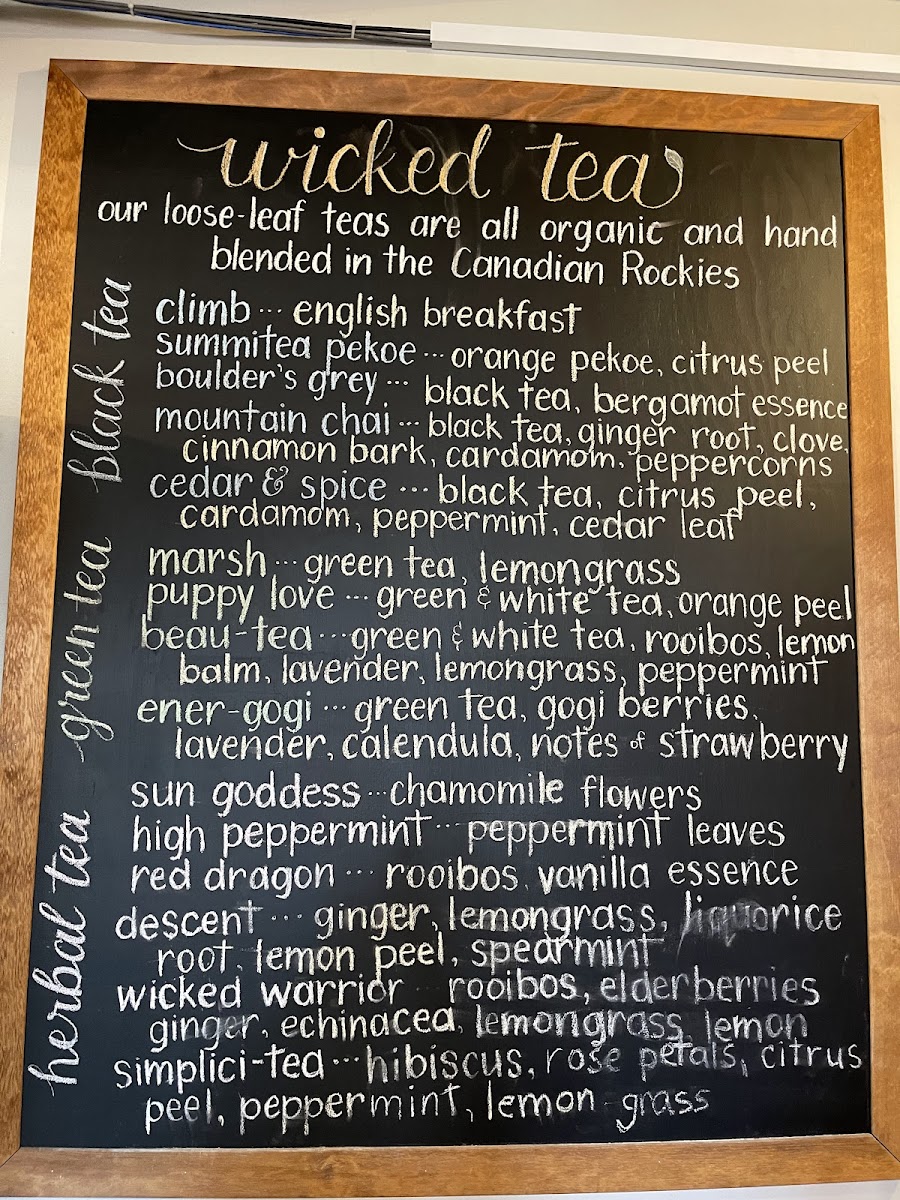 wicked tea
our loose-leaf teas are all organic and hand
blended in the Canadian Rockies
black tea
climb ... english breakfast
summitea pekoe ... orange pekoe, citrus peel
boulder's grey ... black tea, bergamot essence
mountain chai ... black tea, ginger root, clove,
cinnamon bark, cardamom, peppercorns
cedar & spice ... black tea, citrus peel,
cardamom, peppermint, cedar leaf
green tea
marsh ... green tea, lemongrass
puppy love ... green & white tea, orange peel
beau-tea ... green & white tea, rooibos, lemon
balm, lavender, lemongrass, peppermint
ener-gogi ... green tea, gogi berries,
lavender, calendula, notes of strawberry
herbal tea
sun goddess ... chamomile flowers
high peppermint ... peppermint leaves
red dragon ... rooibos, vanilla essence
descent ... ginger, lemongrass, liquorice
root, lemon peel, spearmint
wicked warrior ... rooibos, elderberries
ginger, echinacea, lemongrass, lemon
simplici-tea ... hibiscus, rose petals, citrus
peel, peppermint, lemon grass